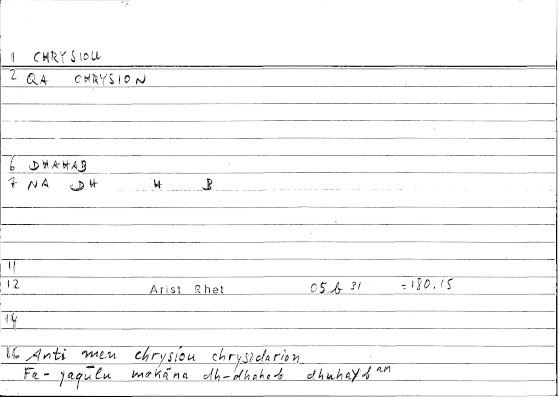 1 CHRYSIOU
2 QA CHRYSION
6 DHAHAB
7 NA DH H B
11
12 Arist Rhet 05 b 31 =180.15
14
16 Anti men chrysiou chrysidarion
Fa-yaqūlu makāna dh-dhahab dhuhayban